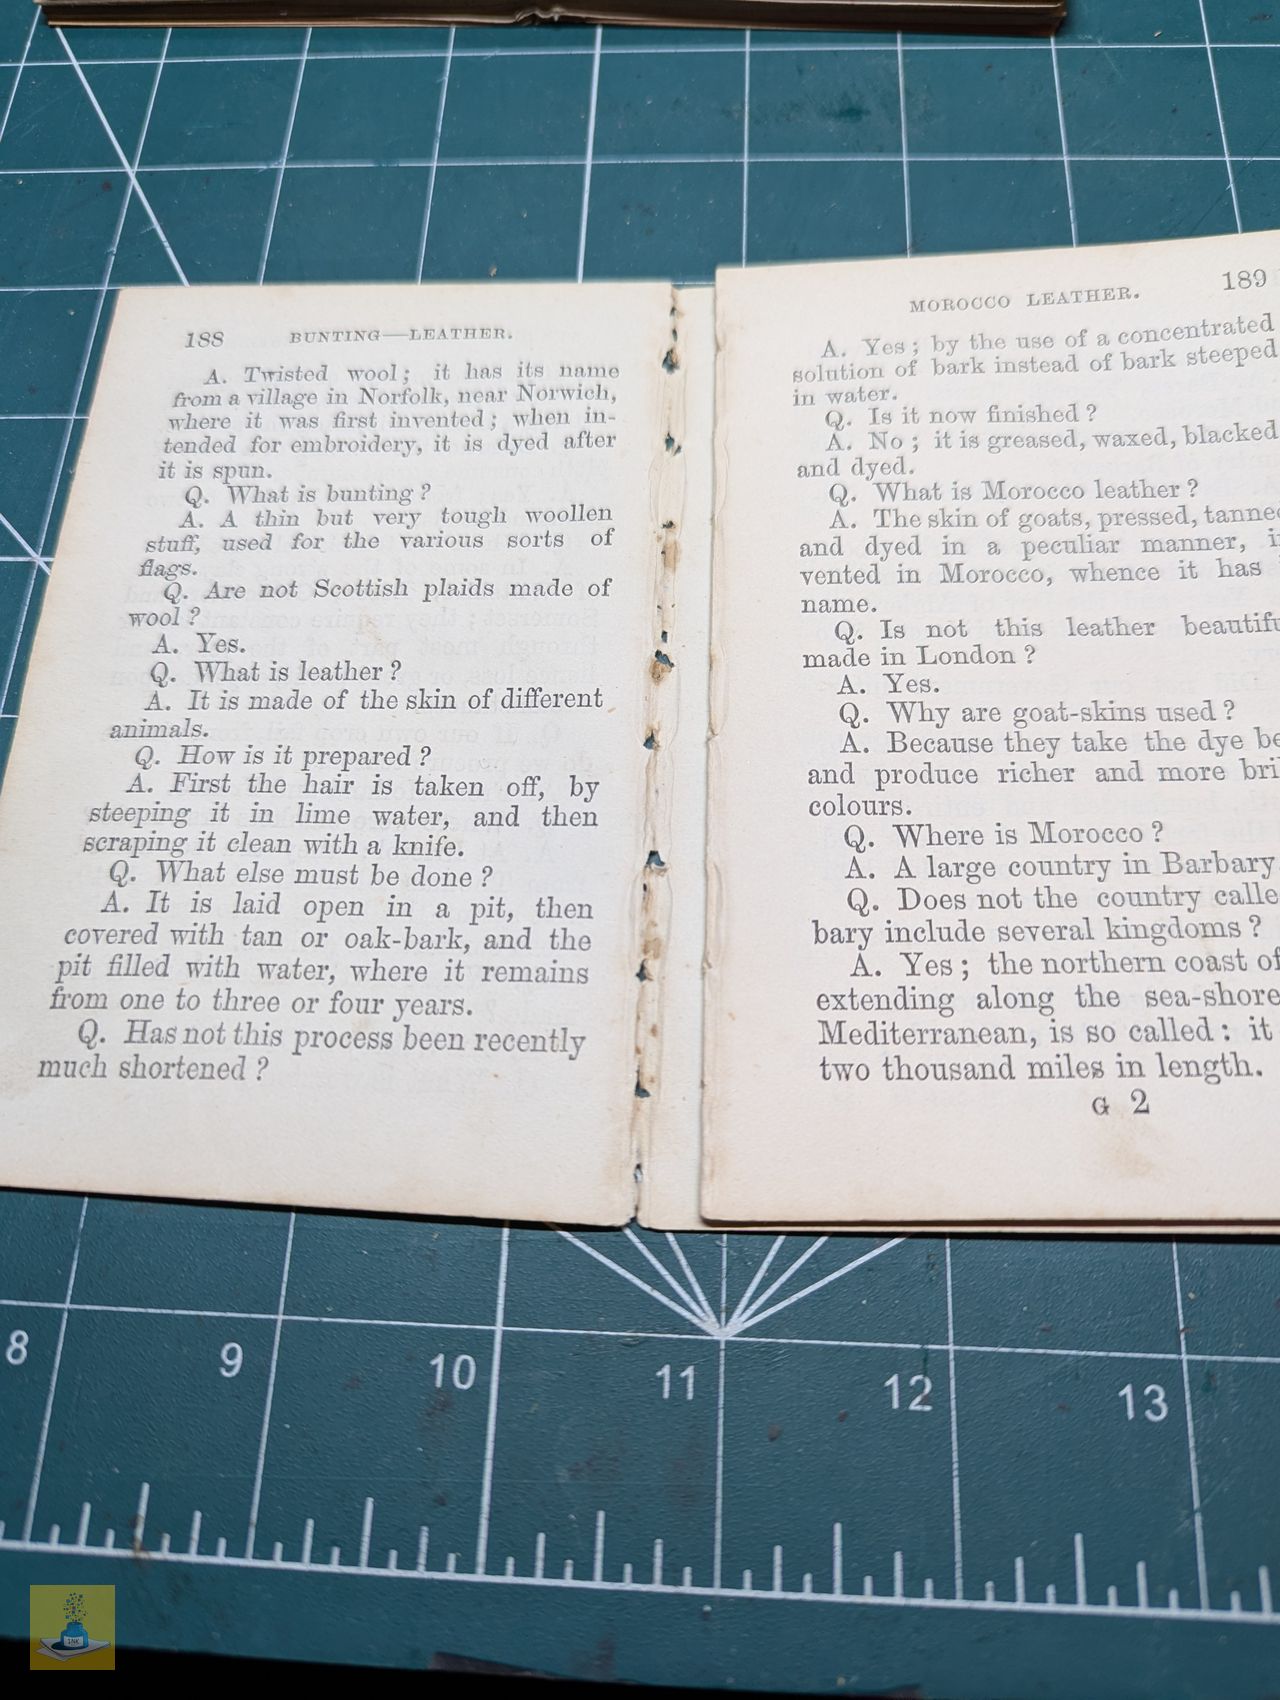 188 BUNTING—LEATHER.
A. Twisted wool; it has its name
from a village in Norfolk, near Norwich,
where it was first invented; when in-
tended for embroidery, it is dyed after
it is spun.
Q. What is bunting?
A. A thin but very tough woollen
stuff, used for the various sorts of
flags.
Q. Are not Scottish plaids made of
wool?
A. Yes.
Q. What is leather?
A. It is made of the skin of different
animals.
Q. How is it prepared?
A. First the hair is taken off, by
steeping it in lime water, and then
scraping it clean with a knife.
Q. What else must be done?
A. It is laid open in a pit, then
covered with tan or oak-bark, and the
pit filled with water, where it remains
from one to three or four years.
Q. Has not this process been recently
much shortened?
MOROCCO LEATHER. 189
A. Yes; by the use of a concentrated
solution of bark instead of bark steeped
in water.
Q. Is it now finished?
A. No; it is greased, waxed, blacked
and dyed.
Q. What is Morocco leather?
A. The skin of goats, pressed, tanne
and dyed in a peculiar manner, i
vented in Morocco, whence it has
name.
Q. Is not this leather beautifu
made in London?
A. Yes.
Q. Why are goat-skins used?
A. Because they take the dye be
and produce richer and more bril
colours.
Q. Where is Morocco?
A. A large country in Barbary
Q. Does not the country calle
bary include several kingdoms?
A. Yes; the northern coast of
extending along the sea-shore
Mediterranean, is so called: it
two thousand miles in length.
G 2
8 9 10 11 12 13
INK